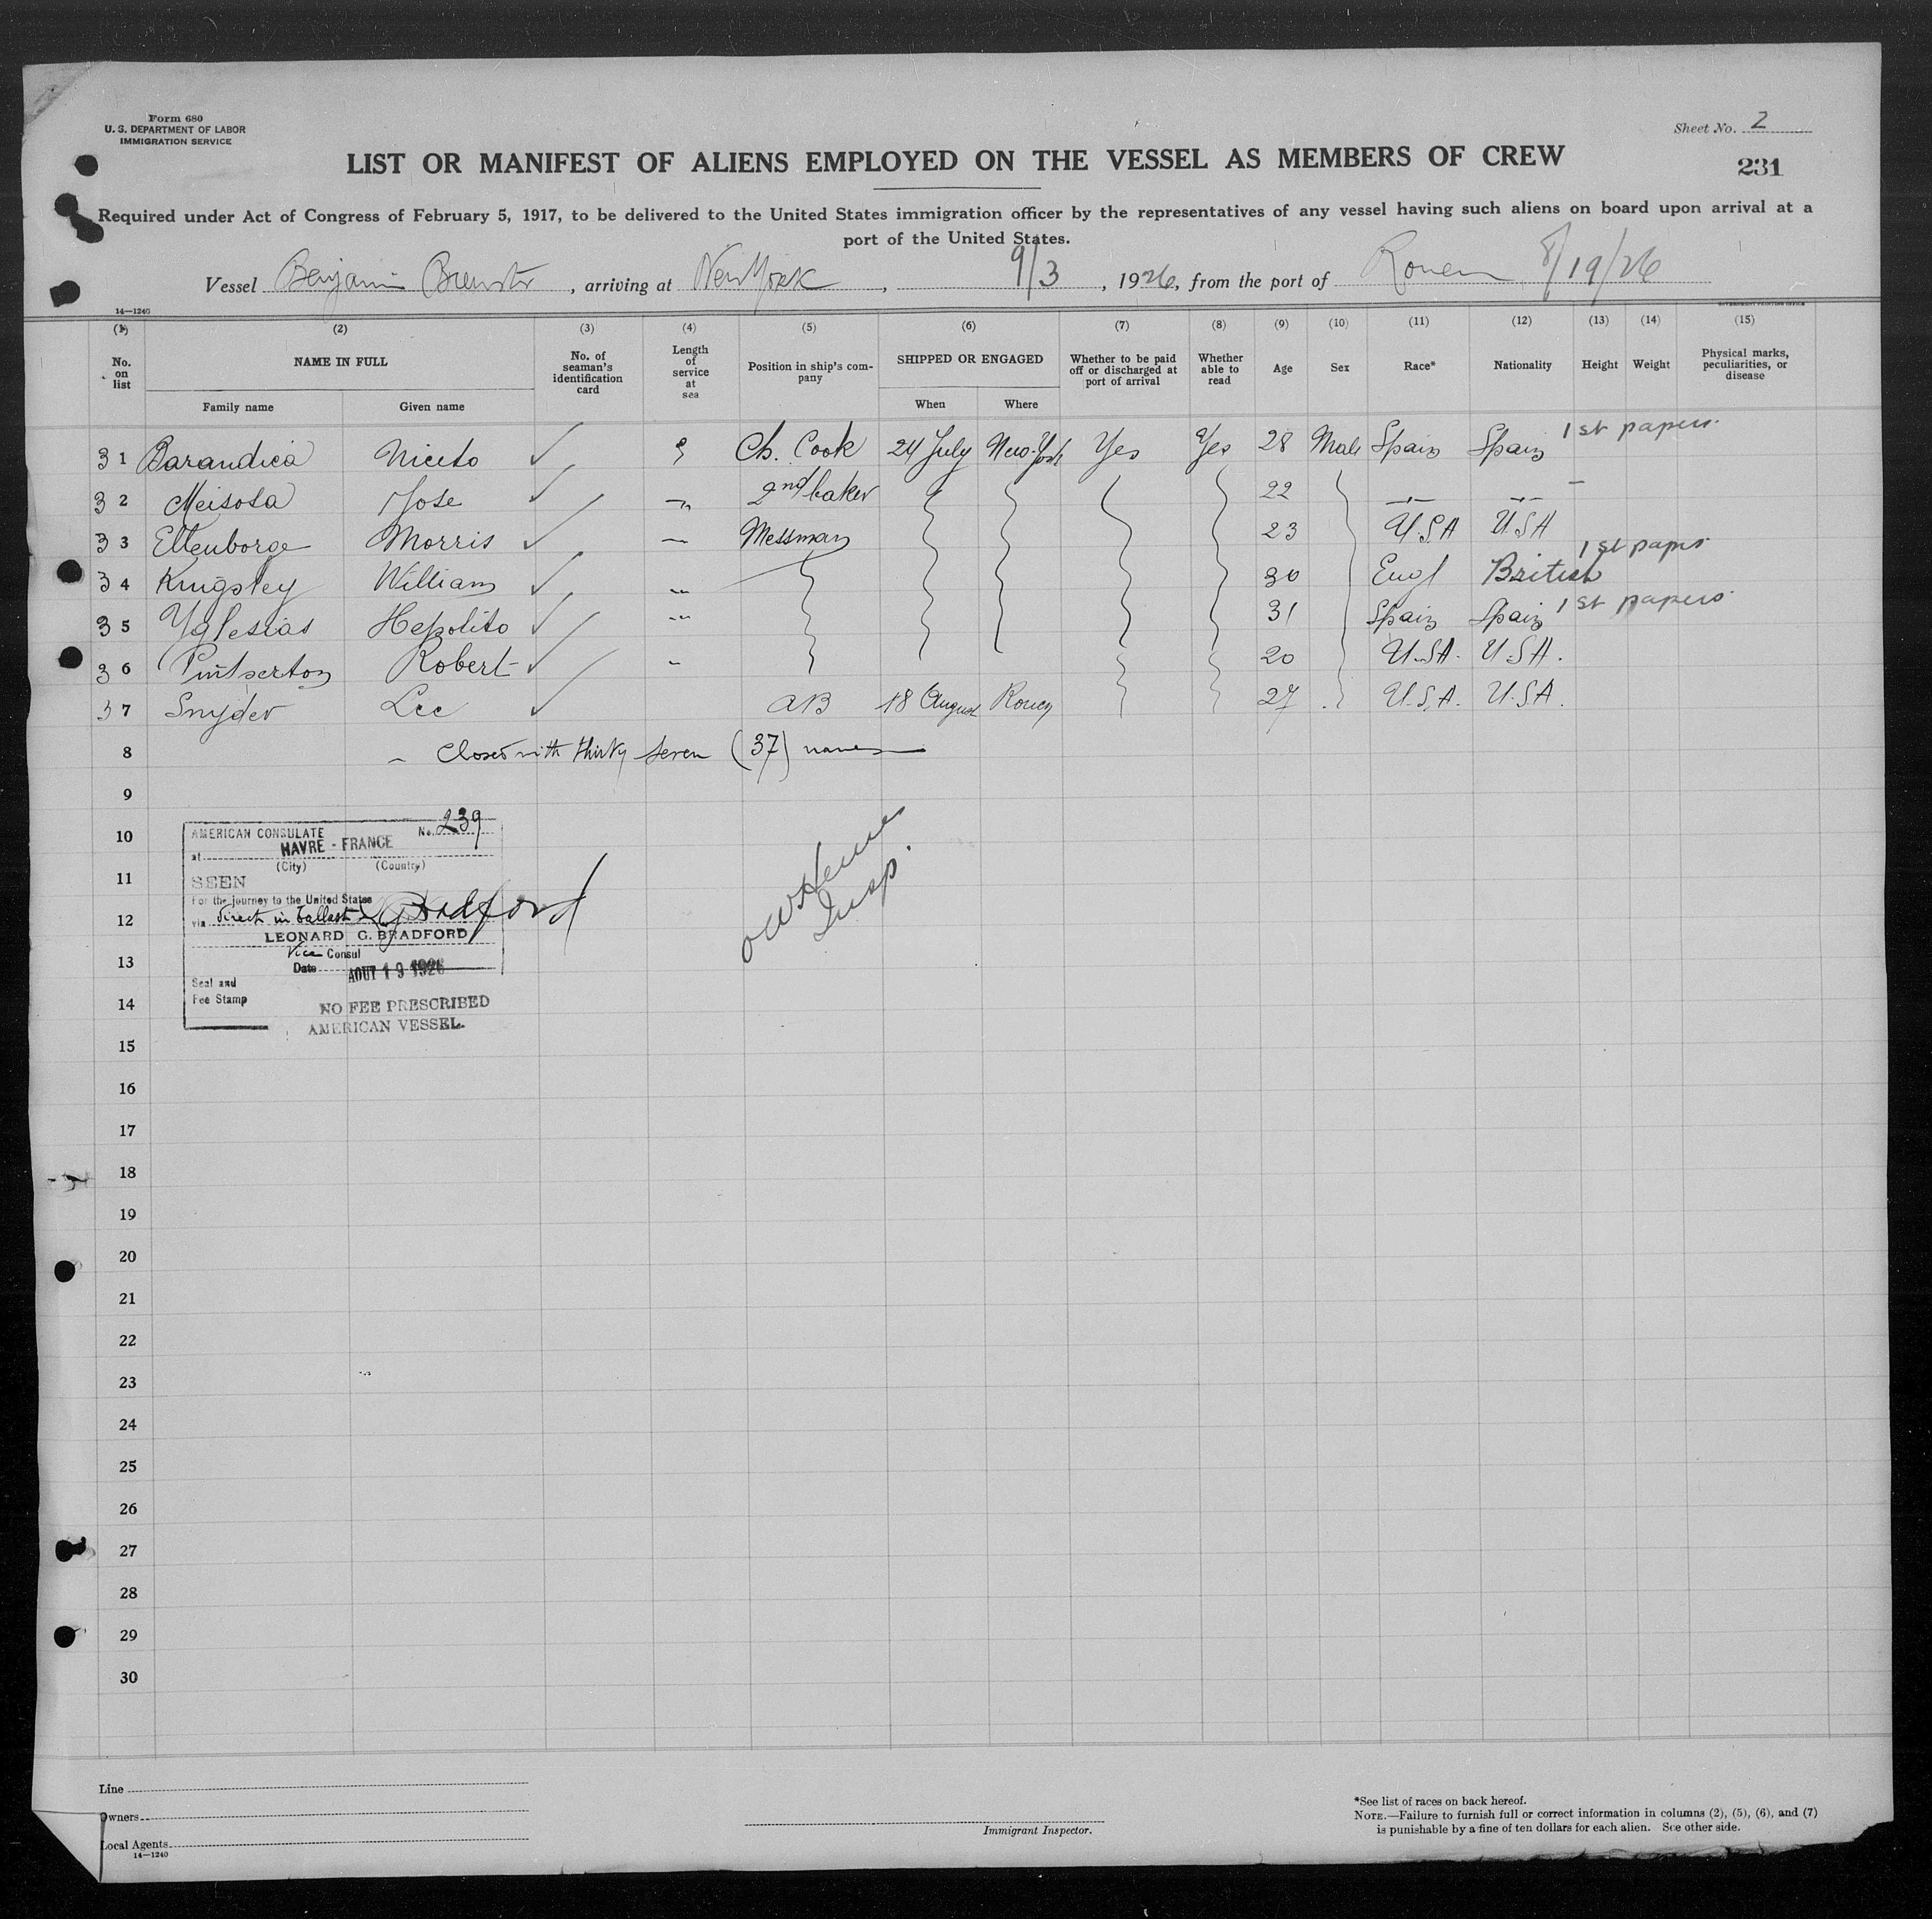 Form 680
U. S. DEPARTMENT OF LABOR
IMMIGRATION SERVICE
Sheet No. 2
LIST OR MANIFEST OF ALIENS EMPLOYED ON THE VESSEL AS MEMBERS OF CREW
231
Required under Act of Congress of February 5, 1917, to be delivered to the United States immigration officer by the representatives of any vessel having such aliens on board upon arrival at a
port of the United States.
Vessel Benjamin Brewster, arriving at New York, 9/3, 1926, from the port of Rouen 8/19/26
14—1240
GOVERNMENT PRINTING OFFICE
(1) (2) (3) (4) (5) (6) (7) (8) (9) (10) (11) (12) (13) (14) (15)
No. on list NAME IN FULL No. of seaman's identification card Length of service at sea Position in ship's company SHIPPED OR ENGAGED Whether to be paid off or discharged at port of arrival Whether able to read Age Sex Race* Nationality Height Weight Physical marks, peculiarities, or disease
Family name Given name When Where
31 Barandica Niceto ✓ Ch. Cook 24 July New-York Yes Yes 28 Male Spain Spain 1st papers
32 Meisosa Jose ✓ 2nd baker 22 —"— —"—
33 Ellenborge Morris ✓ Messman 23 U.S.A U.S.A
34 Kingsley William ✓ 30 Engl British 1st papers
35 Yglesias Hepolito ✓ 31 Spain Spain 1st papers
36 Robert ✓ 20 U.S.A. U.S.A.
37 Snyder Lee ✓ AB 18 August Rouen 27 U.S.A. U.S.A.
8 Closed with thirty seven (37) names
9
10
11
12
13
14
15
16
17
18
19
20
21
22
23
24
25
26
27
28
29
30
AMERICAN CONSULATE No. 239
at HAVRE - FRANCE
(City) (Country)
SEEN
For the journey to the United States
via direct in ballast LGBradford
LEONARD G. BRADFORD
Vice Consul
Date AOUT 19 1926
Seal and
Fee Stamp
NO FEE PRESCRIBED
AMERICAN VESSEL.
Insp.
Line
Owners
Local Agents
14—1240
Immigrant Inspector.
*See list of races on back hereof.
NOTE.—Failure to furnish full or correct information in columns (2), (5), (6), and (7)
is punishable by a fine of ten dollars for each alien. See other side.